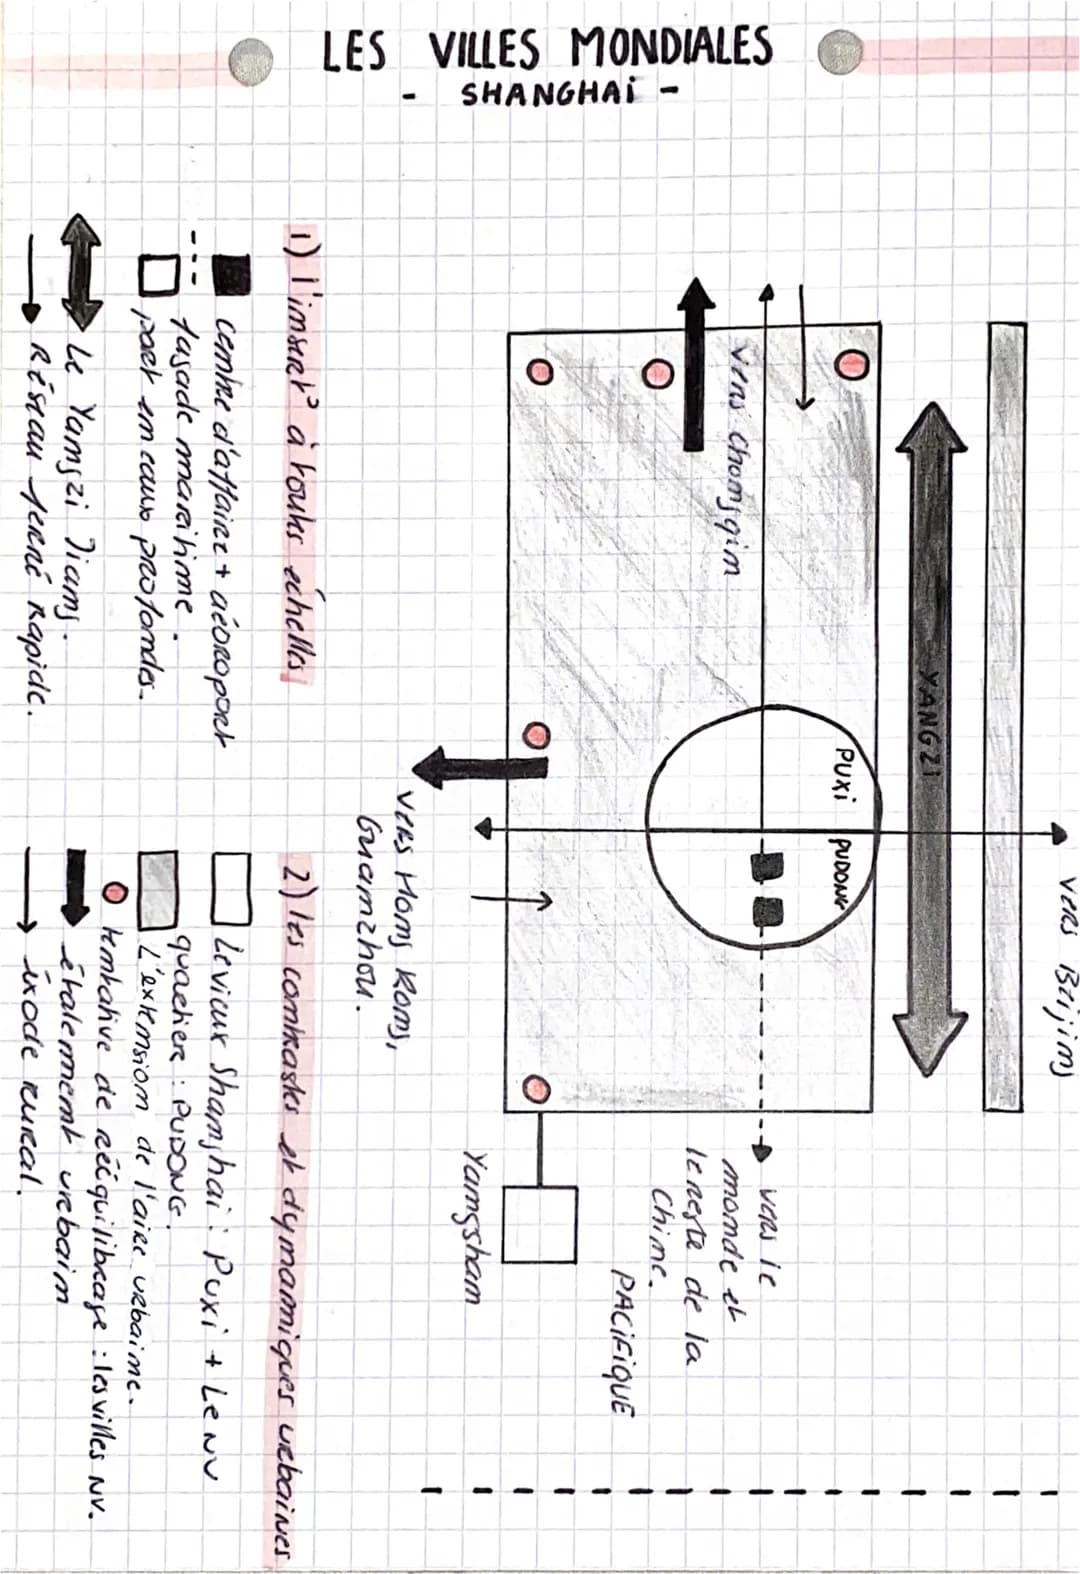 LES VILLES MONDIALES
- SHANGHAI -
VERS Beijing
YANGZI
PUXI
PUDONG
Vers chongqin
vers le
monde et
le reste de la
Chine.
PACIFIQUE
Yangshan
VERS Hong Kong,
Guanzhou.
1) l'insert° à toutes échelles
centre d'affaire + aéroport
façade maritime.
port en eaux profondes.
Le Yangzi Jiang.
Réseau ferré Rapide.
2) les contrastes et dynamiques urbaines
Le vieux Shanghai : Puxi + Le NV
quartier : PUDONG.
L'extension de l'aire urbaine.
tentative de rééquilibrage : les villes NV.
étalement urbain
exode rural.